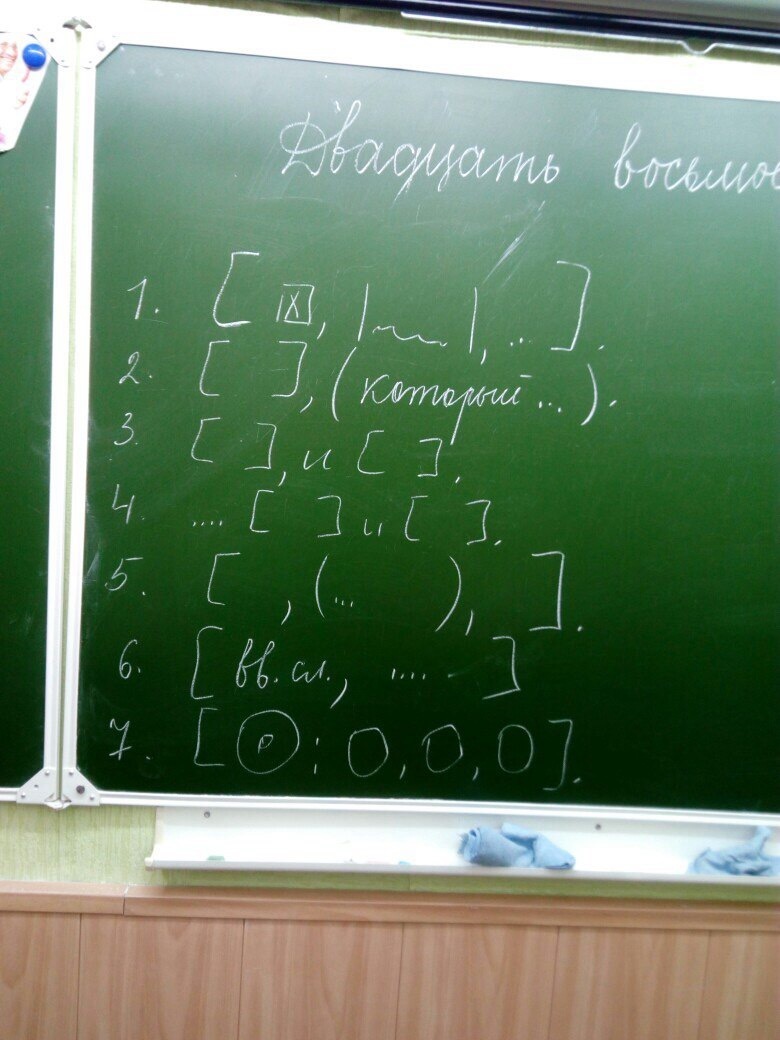 Двадцать восьмое
1. [ [X], |~~~|, ... ].
2. [ ], (который ...).
3. [ ], и [ ].
4. .... [ ] и [ ].
5. [ , (... ), ].
6. [ вв. сл., .... ]
7. [ (Р) : O, O, O ].